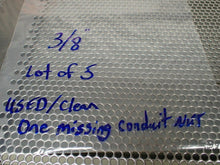 3/8"
Lot of 5
USED/Clean
One missing Conduit Nut